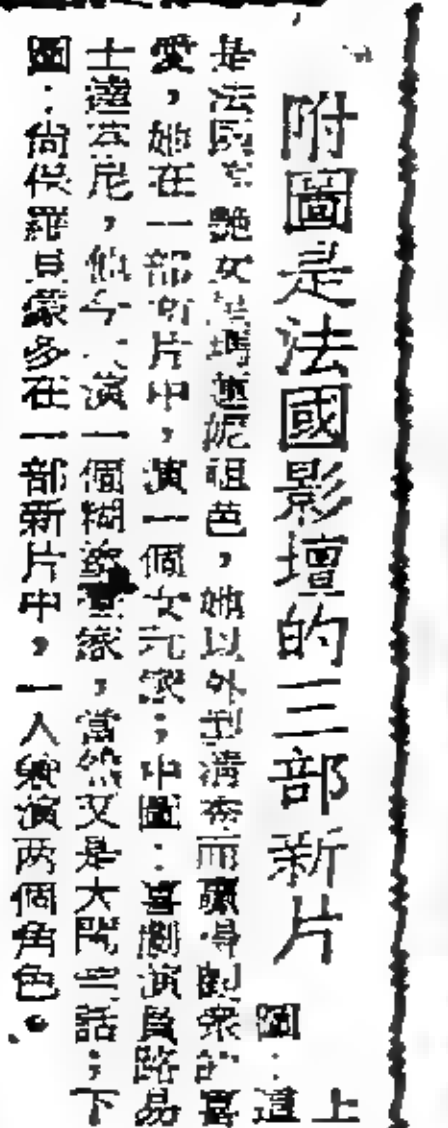 附圖是法國影壇的三部新片
上
圖：這
是法國艷女星瑪蓮妮祖芭，她以外型清秀而贏得觀衆的喜
愛，她在一部新片中，演一個女家；中圖：喜劇演員路易
士達尼，他今演一個糊家，當然又是大鬧笑話；下
圖：尚保羅貝蒙多在一部新片中，一人兼演两個角色。